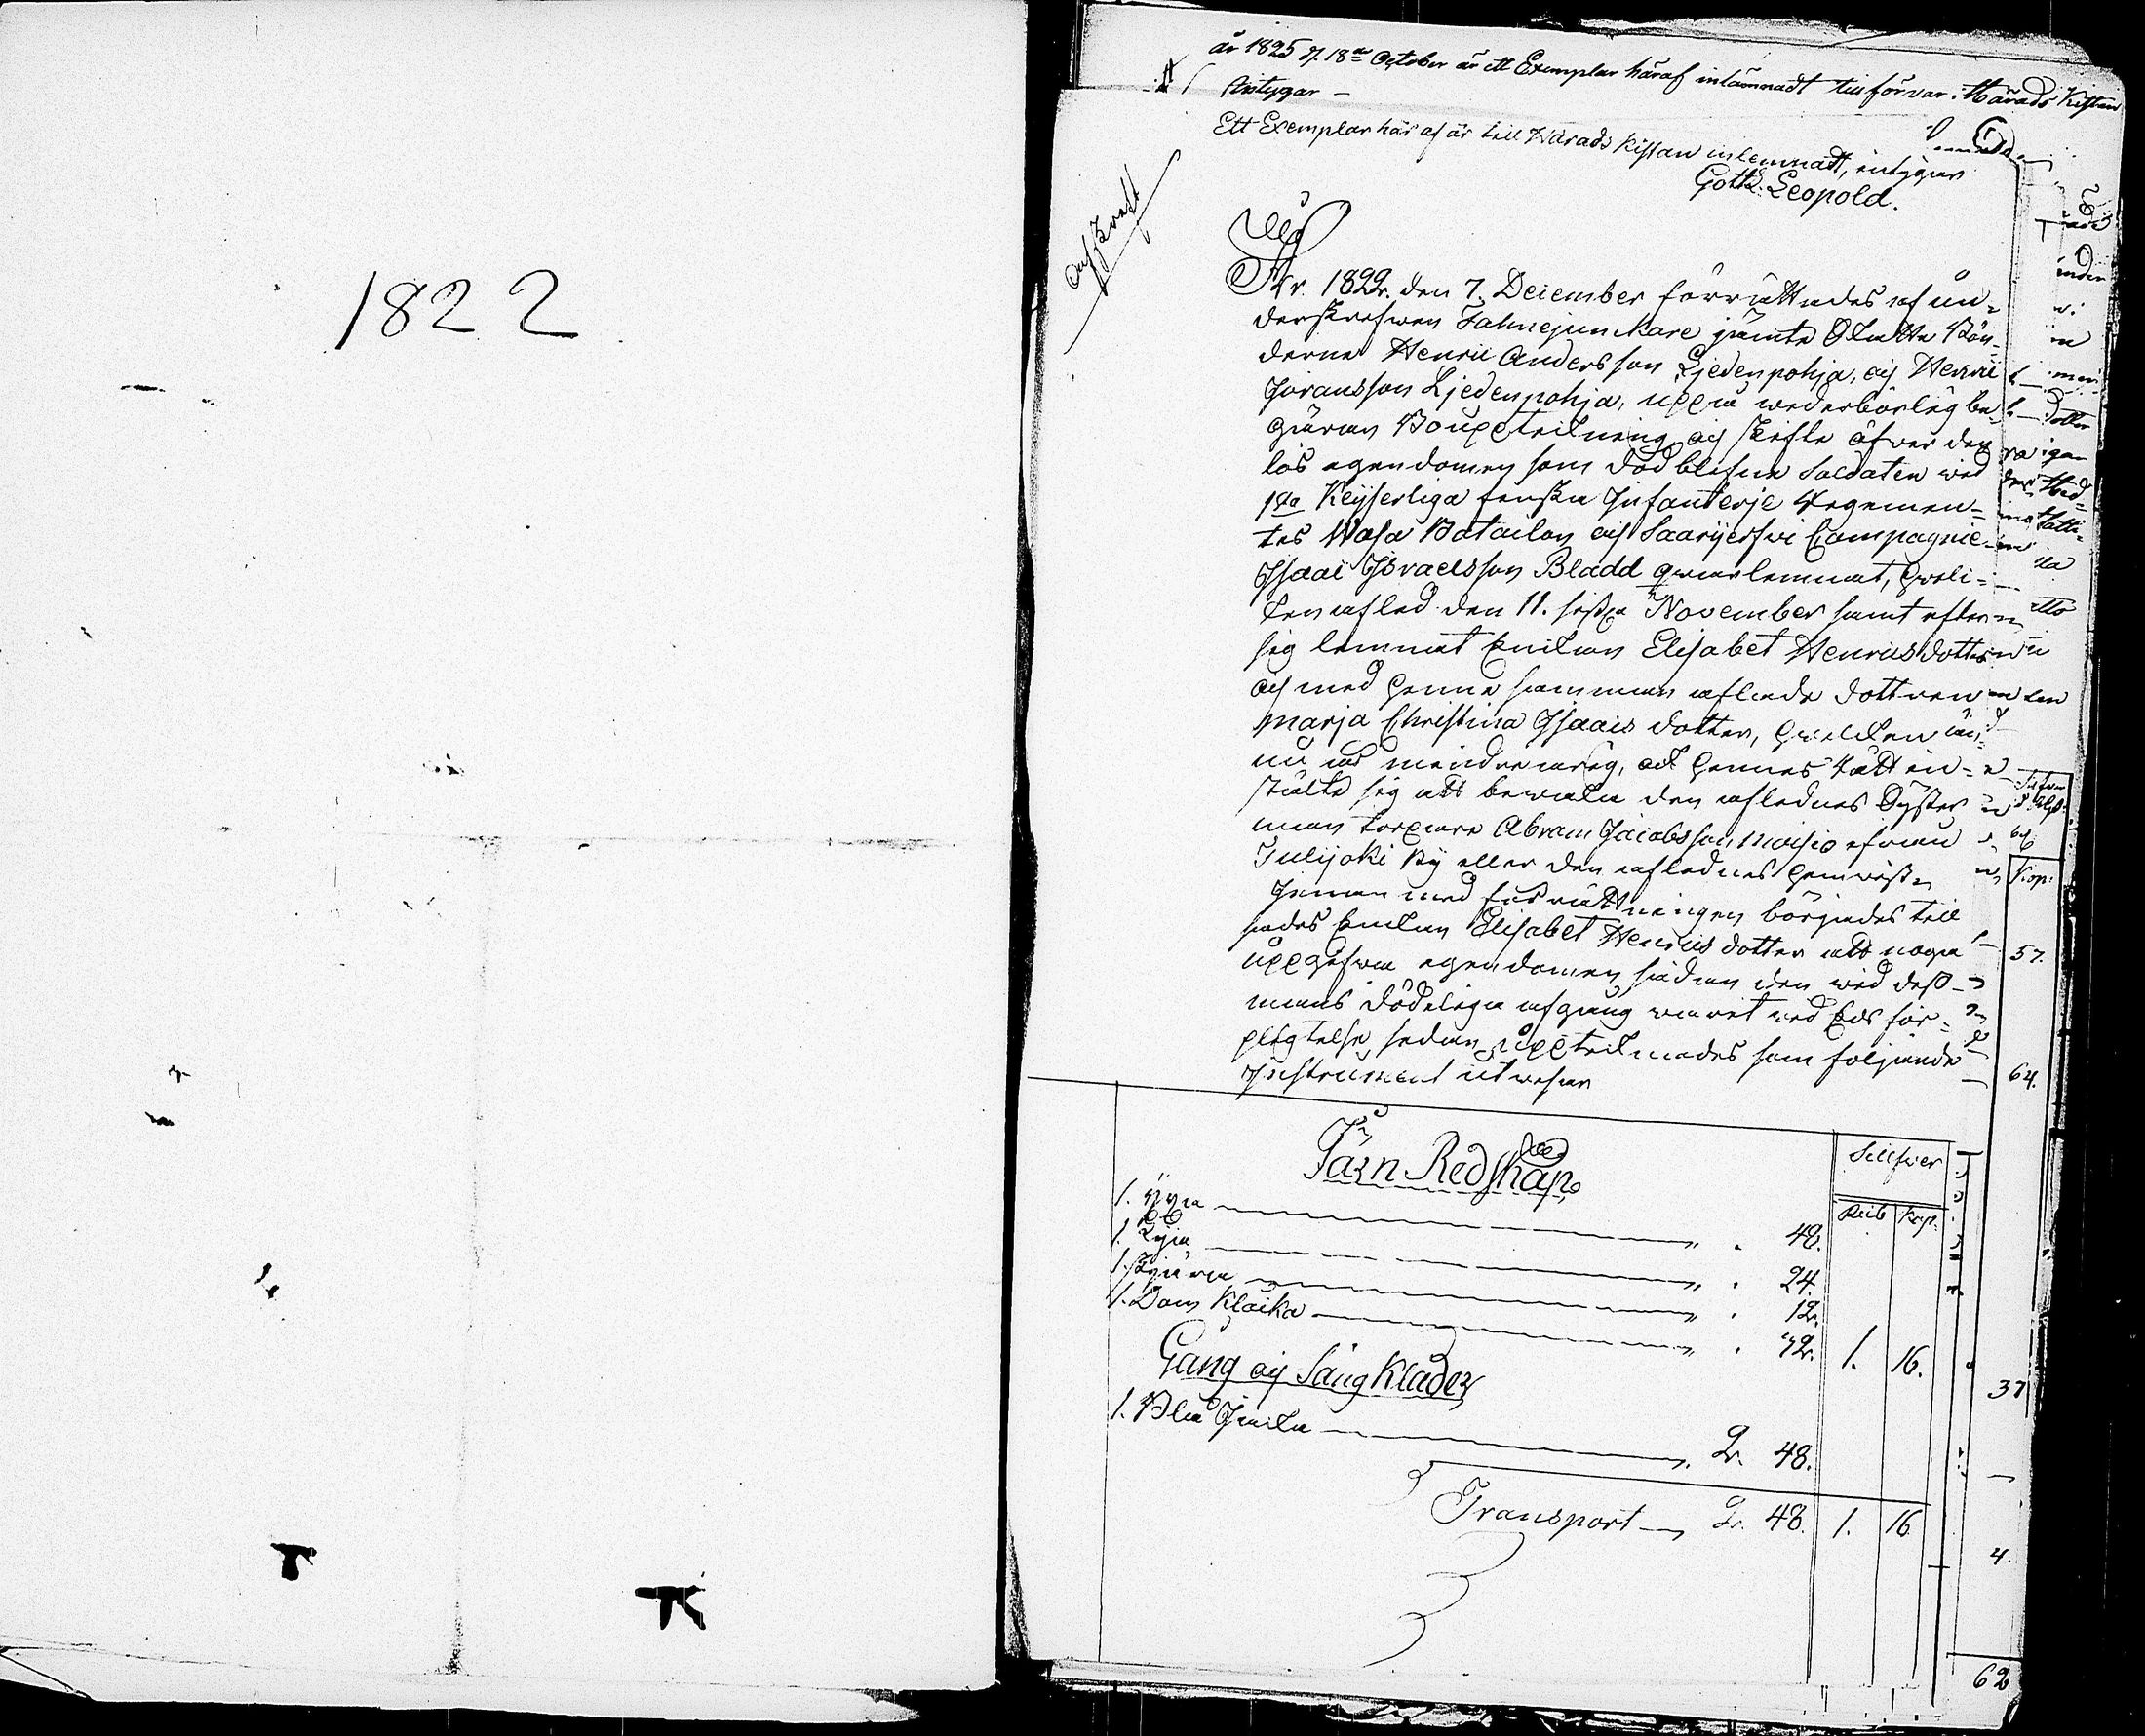 1822
år 1825 d. 18de October är ett Exemplar häraf inlämnadt till förvar i Härads Kistan
Antygar —
Ett Exemplar här af är till Härads Kistan inlemnadt, intygar
Gottl. Leopold.
Afskrefvet
År 1822. den 7. December förrättades af un=
derskrefwen Fahnejunkare jämte Olutta Bön=
derne Henric Andersson Liedenpohja, och Henric
Joransson Liedenpohja, uppå wederbörlig be=
gäran Bouppteckning och skifte öfwer den
lös egendomen som död blifne Soldaten wid
1sta Keyserliga finska Infanterje Regemen=
tes Wasa Batailon och Saarijerfwi Compagnie
Isaac Israelsson Bladd qwarlemnat, hwil=
ken afled den 11. sistl. November samt efter
sig lemnat Enkan Elisabet Henricsdotter
och med henne samman aflade dottren
Marja Christina Isaacs dotter, hwilken än=
nu är minder årig, och hennes rätt in=
stälte sig att bewaka den aflednes Syster
man torpare Abram Jacobsson Moisio ifrån
Julijoki By eller den aflednes hemwist
Innan med förrättningen börjades till
sades Enkan Elisabet Henrics dotter att noga
uppgifwa egendomen sådan den wid dess
mans dödeliga afgång warit wid Eds för=
plegtelse sedan upptecknades som foljande
Instrument utwisar
Järn Redskap
Sillfwer
Rub Kop.
1. Yxa — " . 48.
1. Lyja — " . 24.
1. Skjära — " . 12.
1. Dom Klåcka — " . 32. 1. 16.
Gång och Säng Kläder
1. Blå Jacka — 2. 48.
Transport — 2. 48. 1. 16
Kop:
57.
64.
37
4.
62